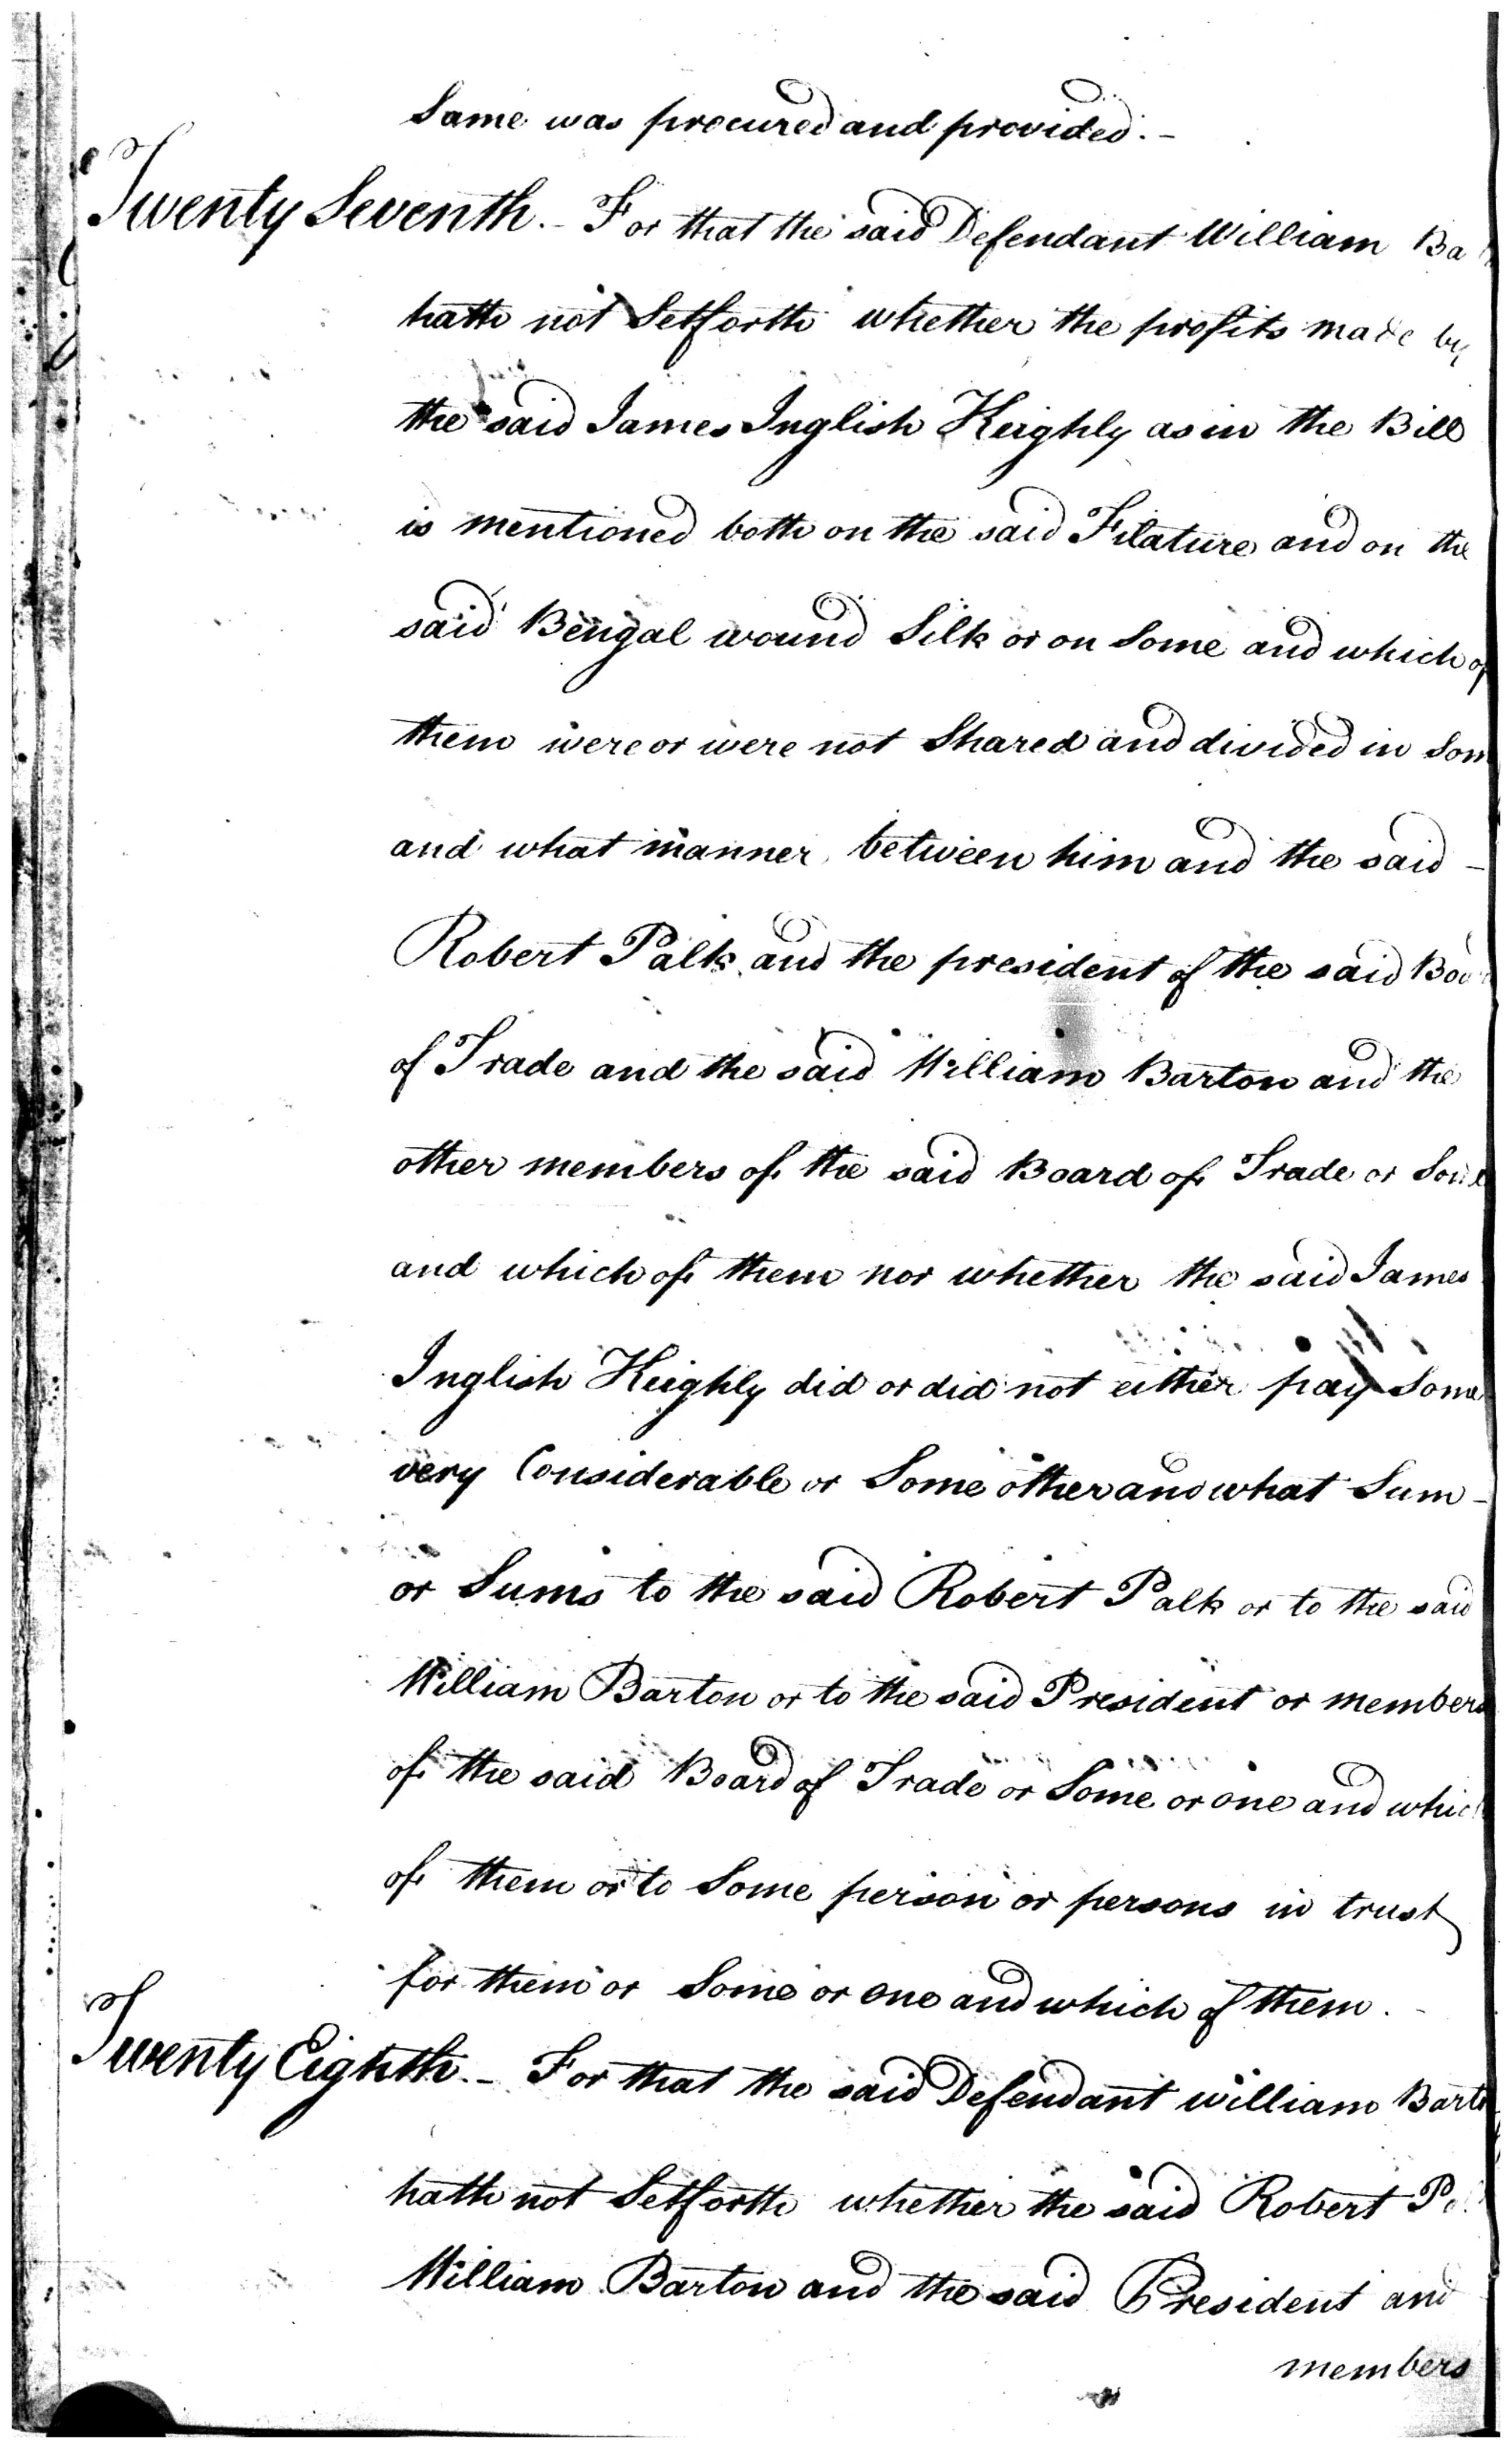 Same was procured and provided. -
Twenty Seventh. - For that the said Defendant William Ba
hath not Setforth whether the profits made by
the said James Inglish Keighly as in the Bill
is mentioned both on the said Filature and on the
said Bengal wound Silk or on Some and which of
them were or were not Shared and divided in Som
and what manner between him and the said -
Robert Palk and the president of the said Boa
of Trade and the said William Barton and the
other members of the said Board of Trade or Some
and which of them nor whether the said James
Inglish Keighly did or did not either pay Some
very Considerable or Some other and what Sum -
or Sums to the said Robert Palk or to the said
William Barton or to the said President or members
of the said Board of Trade or Some or one and which
of them or to Some person or persons in trust
for them or Some or one and which of them. -
Twenty Eighth. - For that the said Defendant William Barto
hath not Setforth whether the said Robert P
William Barton and the said President and
members